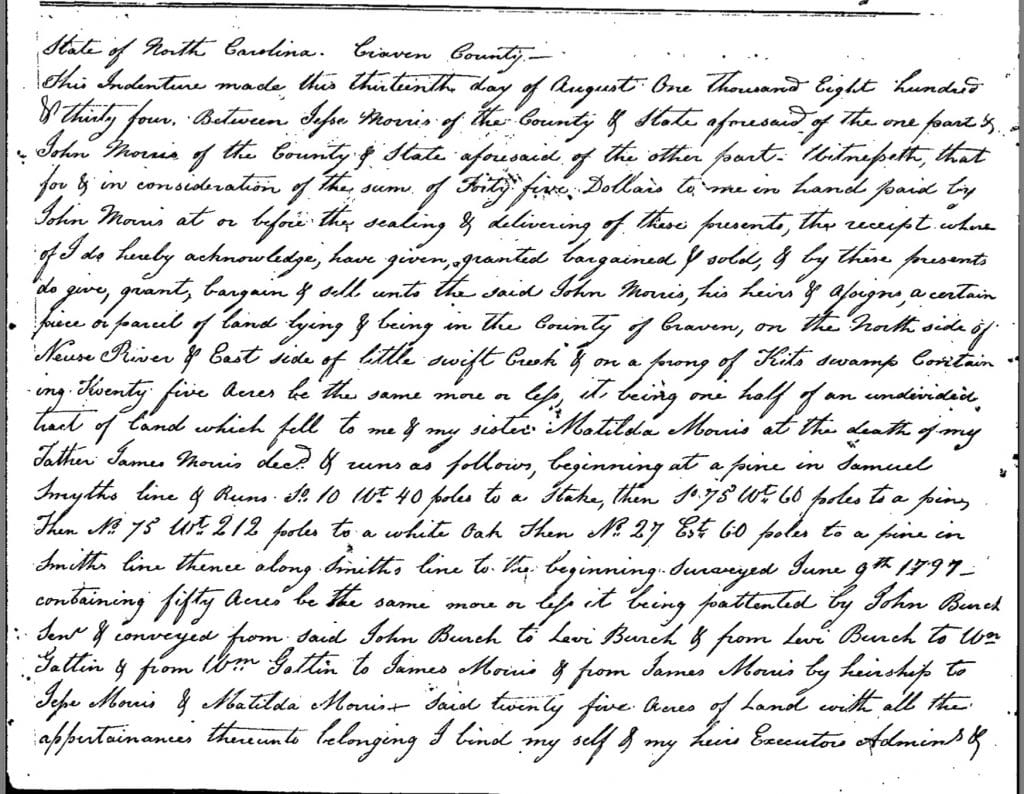 State of North Carolina. Craven County —
This Indenture made this thirteenth day of August One thousand Eight hundred
& thirty four. Between Jesse Morris of the County & State aforesaid of the one part &
John Morris of the County & State aforesaid of the other part. Witnesseth, that
for & in consideration of the sum of Forty five Dollars to me in hand paid by
John Morris at or before the sealing & delivering of these presents, the receipt where
of I do hereby acknowledge, have given, granted bargained & sold, & by these presents
do give, grant, bargain & sell unto the said John Morris, his heirs & Assigns, a certain
piece or parcel of land lying & being in the County of Craven, on the North side of
Neuse River & East side of little swift Creek & on a prong of Kits swamp Contain
ing Twenty five Acres be the same more or less, it being one half of an undivided
tract of land which fell to me & my sister Matilda Morris at the death of my
Father James Morris decd. & runs as follows, beginning at a pine in Samuel
Smyths line & Runs So. 10 Wt 40 poles to a Stake, then So. 75 Wt. 60 poles to a pine,
Then No. 75 Wt. 212 poles to a white Oak Then No. 27 Est. 60 poles to a pine in
Smiths line thence along Smiths line to the beginning. Surveyed June 9th 1797 —
containing fifty Acres be the same more or less it being pattented by John Burch
Senr & conveyed from said John Burch to Levi Burch & from Levi Burch to Wm
Gattin & from Wm Gattin to James Morris & from James Morris by heirship to
Jesse Morris & Matilda Morris Said twenty five Acres of Land with all the
appertainances thereunto belonging I bind my self & my heirs Executors Admins &